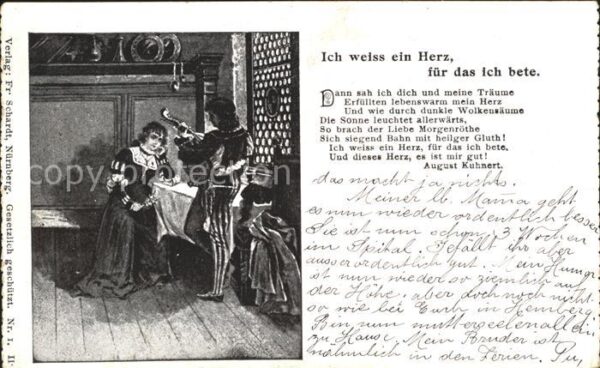 Verlag: Fr Schardt, Nürnberg. Gesetzlich geschützt. Nr. I. II
copy protection
Ich weiss ein Herz,
für das ich bete.
Dann sah ich dich und meine Träume
Erfüllten lebenswarm mein Herz
Und wie durch dunkle Wolkensäume
Die Sonne leuchtet allerwärts,
So brach der Liebe Morgenröthe
Sich siegend Bahn mit heilger Gluth!
Ich weiss ein Herz, für das ich bete,
Und dieses Herz, es ist mir gut!
August Kuhnert.
das macht ja nichts.
Meiner lb. Mama geht
es nun wieder ordentlich besser
Sie ist nun schon 3 Wochen
im Spital. Gefällt ihr aber
ausserordentlich gut. Mein Humor
ist nun wieder so ziemlich auf
der Höhe, aber doch noch nicht
so wie bei Euch in
Bin nun mutterseelenallein
zu Hause. Mein Bruder ist
nähmlich in den Ferien.